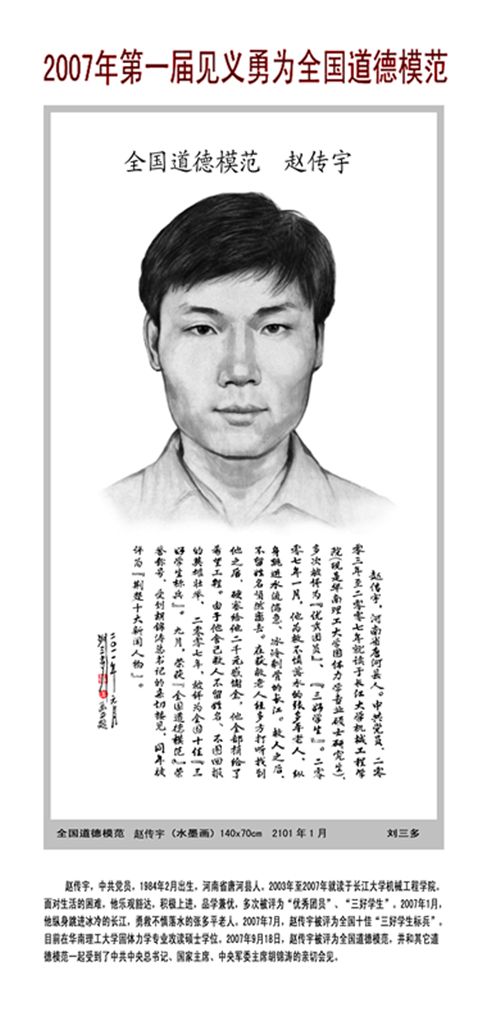 2007年第一届见义勇为全国道德模范
全国道德模范 赵传宇
赵传宇，河南省唐河县人。中共党员，二零
零三年至二零零七年就读于长江大学机械工程学
院(现是华南理工大学固体力学专业硕士研究生)，
多次被评为『优秀团员』、『三好学生』。二零
零七年一月，他为救不慎落水的张多平老人，纵
身跳进水流湍急、冰冷刺骨的长江。救人之后，
不留姓名悄然离去。在获救老人经多方打听找到
他之后，硬塞给他二千元感谢金，他全部捐给了
希望工程。由于他舍己救人不留姓名、不图回报
的英雄壮举，二零零七年，被评为全国十佳『三
好学生标兵』。九月，荣获『全国道德模范』荣
誉称号，受到胡锦涛总书记的亲切接见，同年被
评为『荆楚十大新闻人物』。
二〇一一年元月
刘三多
全国道德模范 赵传宇（水墨画）140x70cm 2101年1月 刘三多
赵传宇，中共党员，1984年2月出生，河南省唐河县人。2003年至2007年就读于长江大学机械工程学院。
面对生活的困难，他乐观豁达，积极上进，品学兼优，多次被评为“优秀团员”、“三好学生”。2007年1月，
他纵身跳进冰冷的长江，勇救不慎落水的张多平老人。2007年7月，赵传宇被评为全国十佳“三好学生标兵”。
目前在华南理工大学固体力学专业攻读硕士学位。2007年9月18日，赵传宇被评为全国道德模范，并和其它道
德模范一起受到了中共中央总书记、国家主席、中央军委主席胡锦涛的亲切会见。